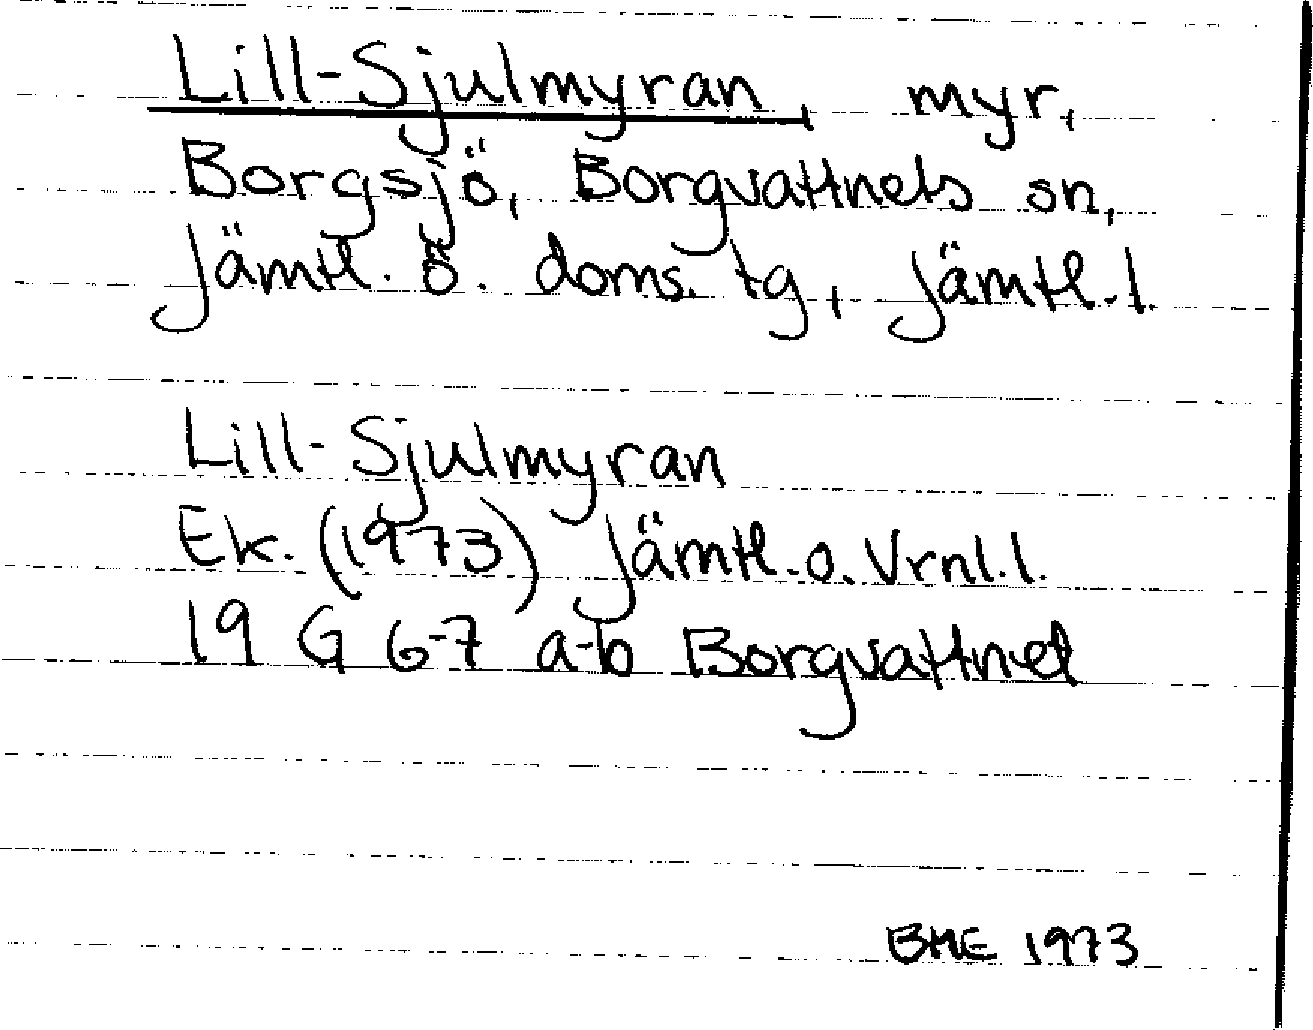 Lill-Sjulmyran, myr,
Borgsjö, Borgvattnets sn,
Jämtl. ö. doms. tg, Jämtl. l.
Lill-Sjulmyran
Ek. (1973) Jämtl. o. Vrnl. l.
19 G 6-7 a-b Borgvattnet
BME 1973